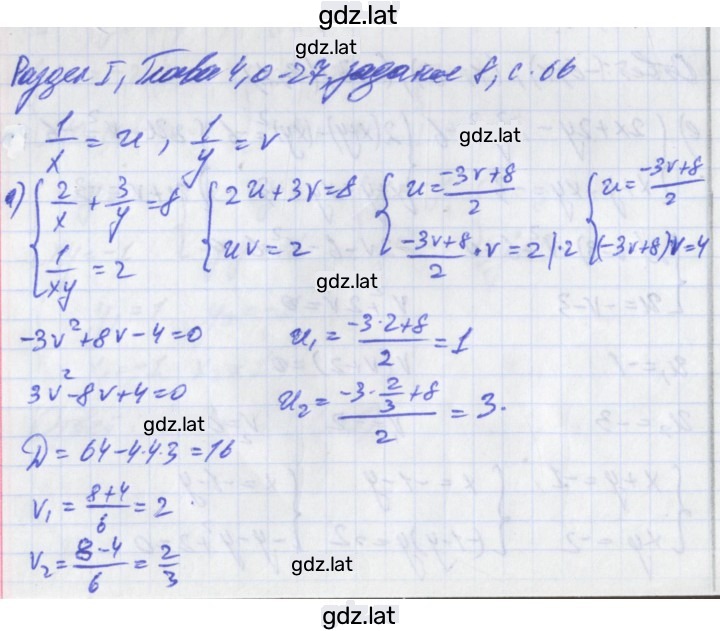 gdz.lat
gdz.lat
Раздел I, Глава 4, о-27, задание 8, с. 66
1/x = u, 1/y = v
gdz.lat
а) { 2/x + 3/y = 8 { 2u + 3v = 8 { u = (-3v+8)/2 { u = (-3v+8)/2
1/xy = 2 uv = 2 (-3v+8)/2 · v = 2 |·2 (-3v+8)v = 4
gdz.lat
-3v² + 8v - 4 = 0 u₁ = (-3·2+8)/2 = 1
3v² - 8v + 4 = 0 u₂ = (-3·2/3+8)/2 = 3.
gdz.lat
D = 64 - 4·4·3 = 16
v₁ = (8+4)/6 = 2
v₂ = (8-4)/6 = 2/3
gdz.lat
gdz.lat